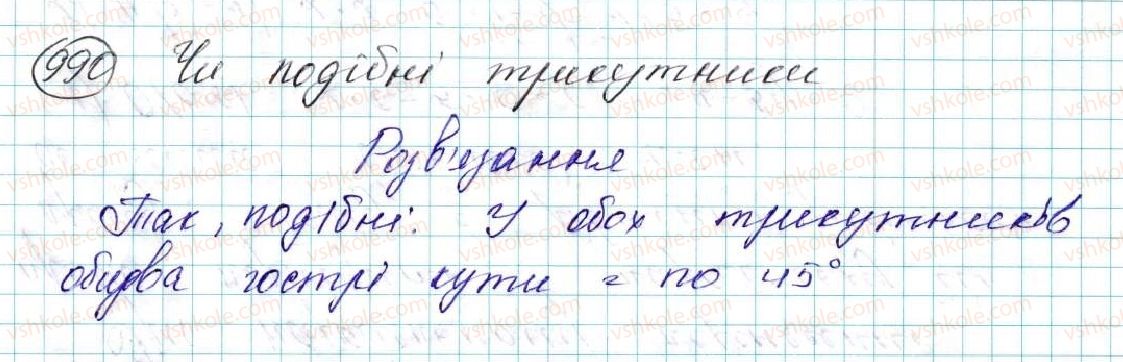 990 Чи подібні трикутники
Розв'язання
Так, подібні. У обох трикутників
обидва гострі кути = по 45°